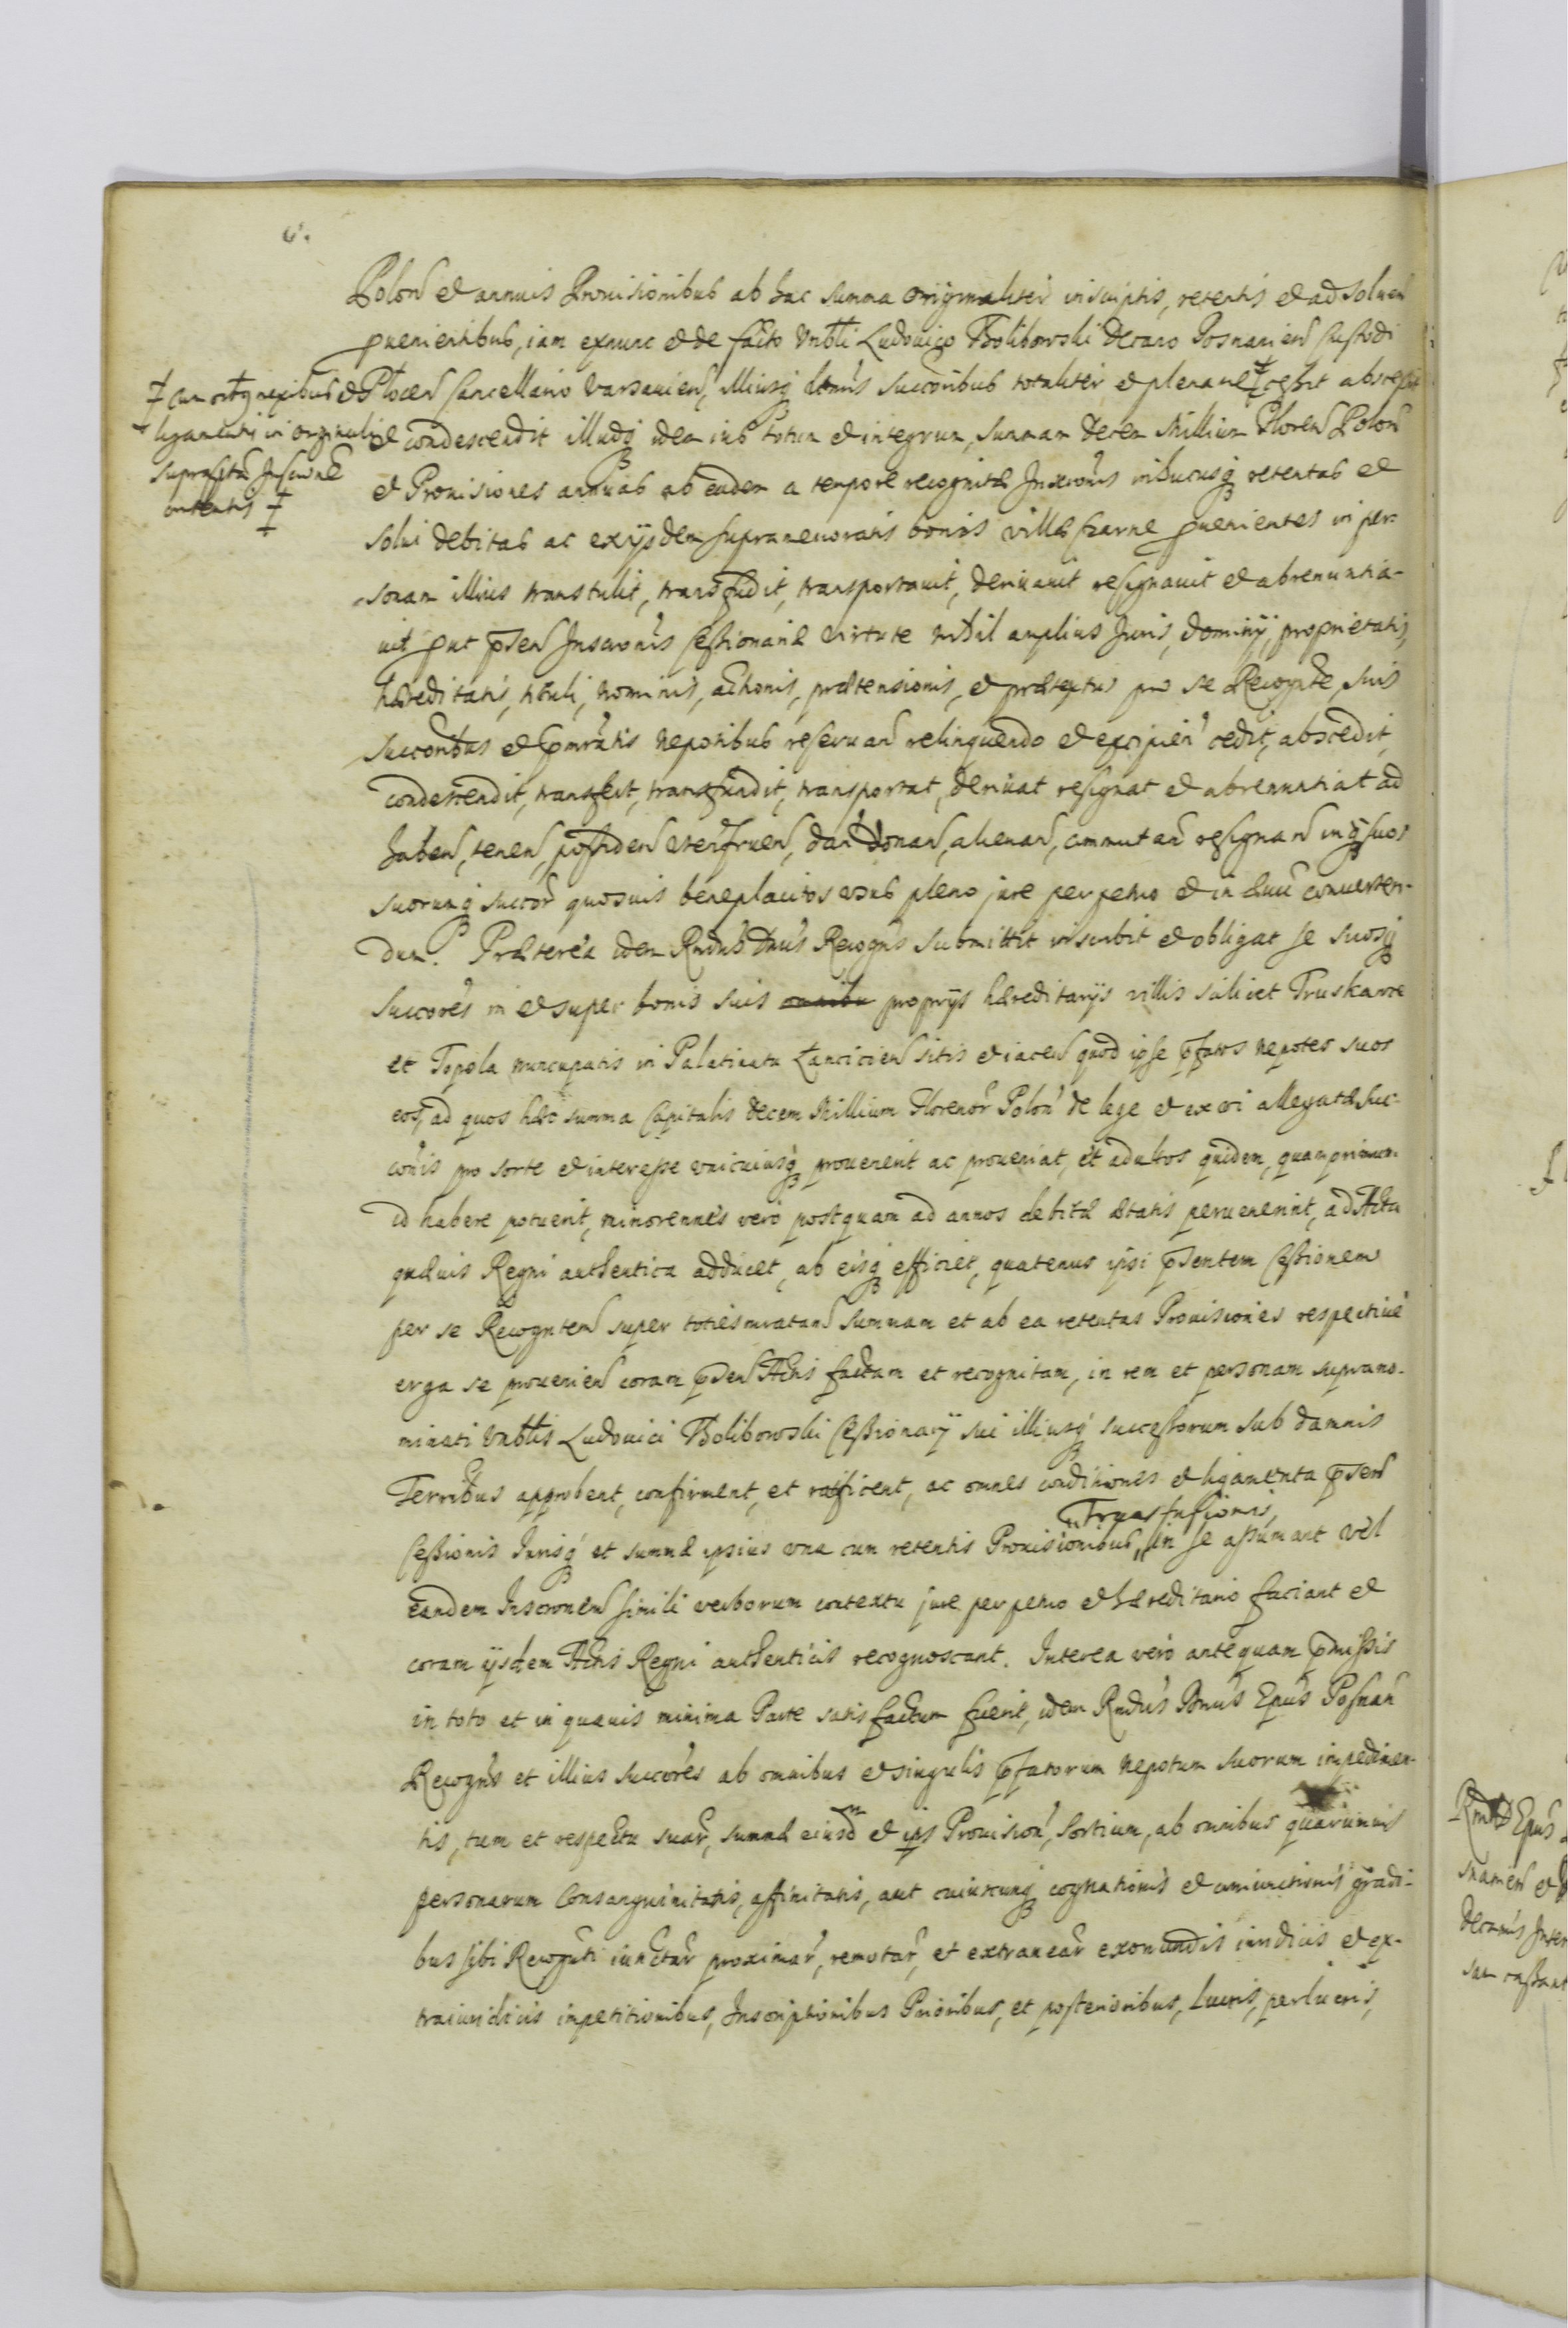 6.
Polon et annuis Prouisionibus ab hac summa originaliter inscriptis, retentis et ad soluen
puenientibus, iam exnunc et de facto Vnbli Ludouico Bolibowski Decano Posnanien Custodi
Plocen Cancellario Varsauien, illiusq ltmis succoribus totaliter et plenarie ‡ cessit abscessit
‡ cum oibq nexibus et
ligamentis in originali
suprascta Inscrone
contentis ‡
et condescendit illudq idem ius totum et integrum, summam decem Millium Floren Polon
et Prouisiones annuas ab eadem a tempore recognitæ Inscronis in hucusq retentas et
solui debitas ac ex ijsdem supramemoratis bonis villæ Czarne puenientes in per-
sonam illius transtulit, transfudit, transportauit, deriuauit resignauit et abrenuntia-
uit put pnsen Inscronis Cessionariæ virtute nihil amplius Juris, dominij, proprietatis,
hæreditatis, tituli, nominis, actionis, prætensionis, et prætextus pro se Recognte, suis
succoribus et nepotibus reseruan relinquendo et excipien cedit, abscedit,
condescendit, transfert, transfundit, transportat, deriuat resignat et abrenuntiat ad
haben, tenen, possiden utenfruen, dan donan, alienan, commutan resignan inq suos
suorumq succor quosuis beneplacitos usus pleno jure perpetuo et in æuu conuerten-
dum. Præterea idem Rndus Dnus Recogns submittit inscribit et obligat se suosq
succores in et super bonis suis proprijs hæreditarijs villis scilicet Truskawe
et Topola nuncupatis in Palatinatu Łancicien sitis et iacen quod ipse pfatos nepotes suos
eos, ad quos hæc summa Capitalis decem Millium Florenor Polon de lege et ex vi allegatæ suc-
conis pro sorte et interesse unicuiusq prouenerit ac proueniat, et adultos quidem, quamprimum
id habere potuerit, minorennes vero postquam ad annos debitæ ætatis peruenerint, ad Acta
quæuis Regni authentica adducet, ab eisq efficiet, quatenus ipsi psentem Cessionem
per se Recognten super totiesmratam summam et ab ea retentas Prouisiones respectiue
erga se prouenien coram psen Actis factam et recognitam, in rem et personam suprano-
minati Vnblis Ludouici Bolibowski Cessionarij sui illiusq successorum sub damnis
Terribus approbent, confirment, et ratificent, ac omnes conditiones et ligamenta psen
Transfusionis
Cessionis Jurisq et summæ ipsius una cum retentis Prouisionibus, in se assumant vel
eandem Inscronem simili verborum contextu jure perpetuo et hæreditario faciant et
coram ijsdem Actis Regni authenticis recognoscant. Interea vero antequam pmissis
in toto et in quauis minima Parte satisfactum fuerit, idem Rndus Dnus Epus Posnan
Recogns et illius succores ab omnibus et singulis pfatorum nepotum suorum impedimen-
tis, tum et respectu suar, summæ eiusdm et ips Prouision, sortium, ab omnibus quarumuis
personarum Consanguinitatis, affinitatis, aut cuiuscunq cognationis et coniunctionis gradi-
bus sibi Recognti iunctar proximar, remotar, et extranear exomundis iuridicis et ex-
traiuridicis impetitionibus, Inscriptionibus Prioribus, et posterioribus, Lucris, perlucris,
Epus